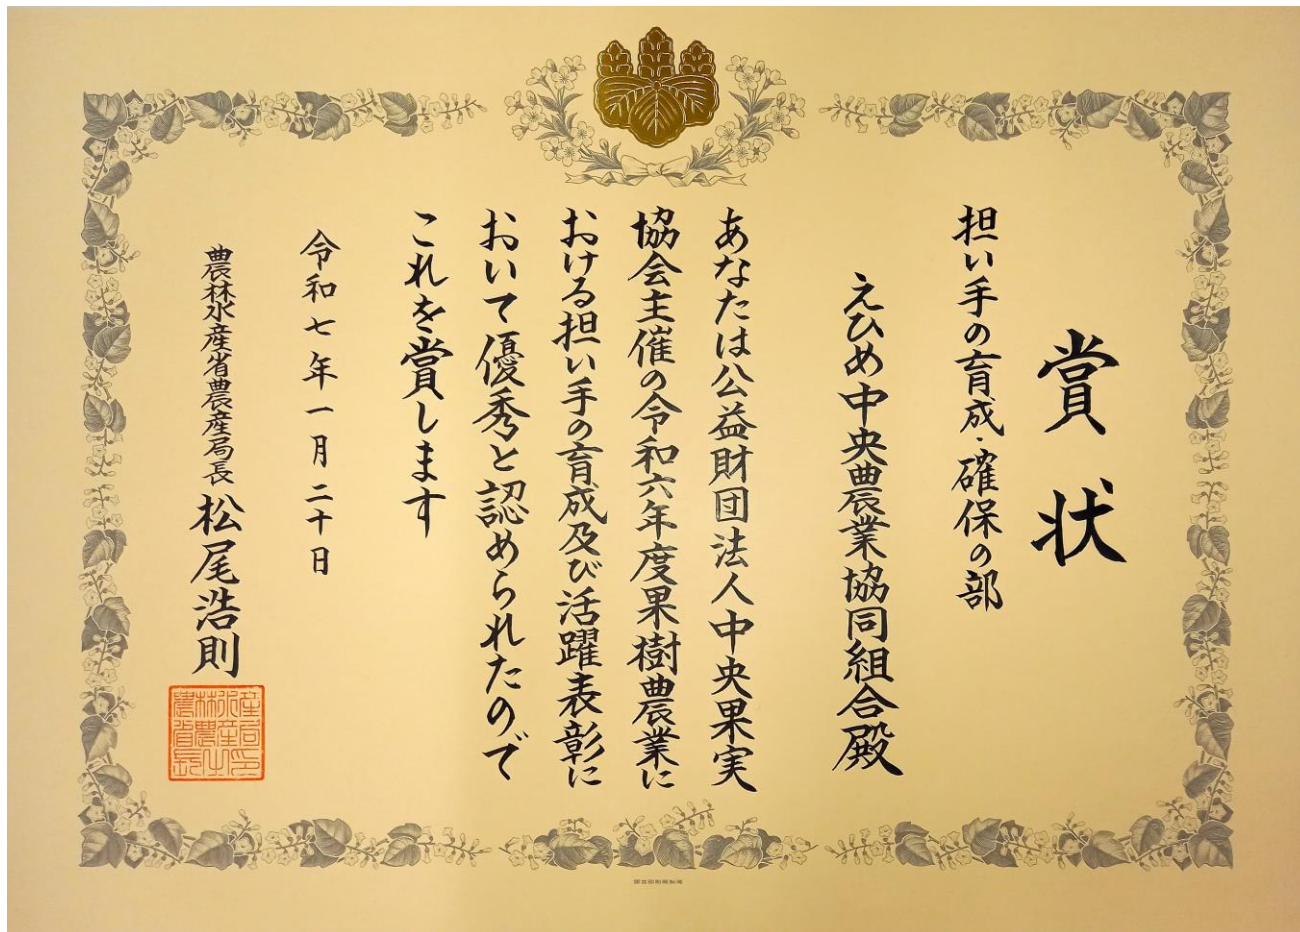 賞状
担い手の育成・確保の部
えひめ中央農業協同組合殿
あなたは公益財団法人中央果実
協会主催の令和六年度果樹農業に
おける担い手の育成及び活躍表彰に
おいて優秀と認められたので
これを賞します
令和七年一月二十日
農林水産省農産局長 松尾浩則